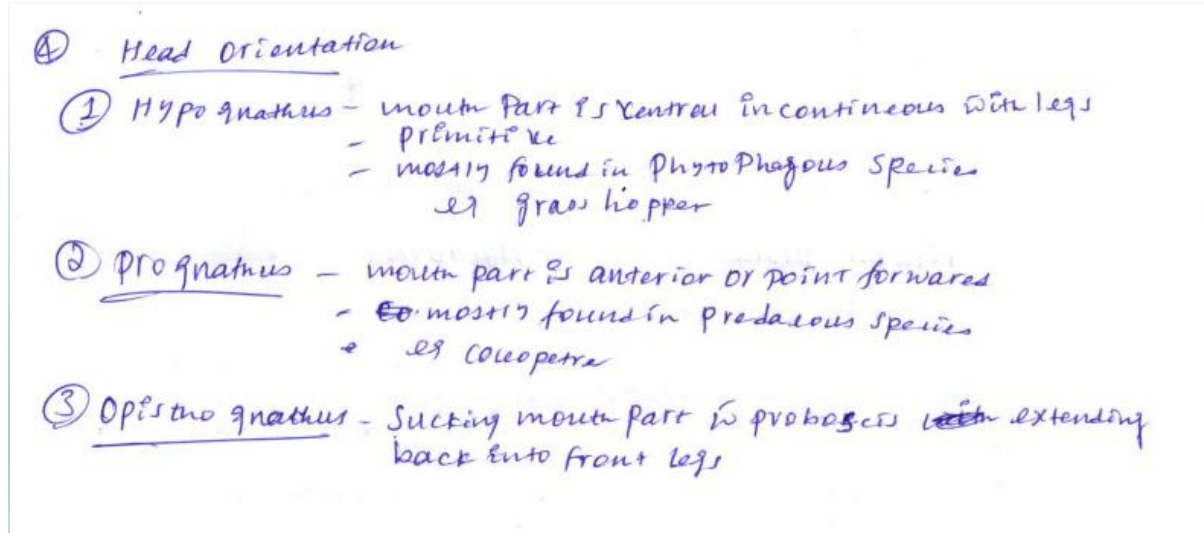 ④ Head orientation
① Hypognathus - mouth Part is ventral incontineous with legs
- primitive
- mostly found in Phytophagous species
eg grass hopper
② prognathus - mouth part is anterior or point forwares
- mostly found in predaceous species
eg coleopetra
③ Opistho gnathus - Sucking mouth part is proboscis extending
back into front legs